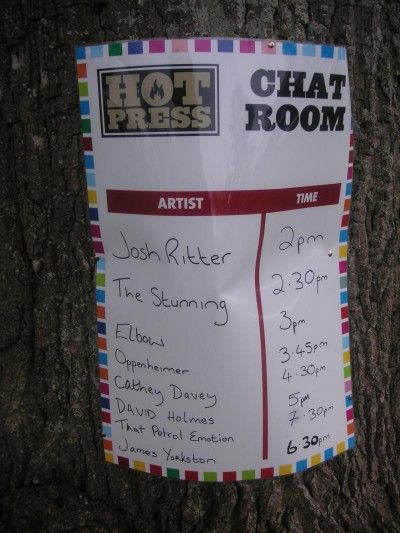 HOT PRESS
CHAT ROOM
ARTIST TIME
Josh Ritter 2pm
The Stunning 2.30pm
Elbow 3pm
Oppenheimer 3.45pm
Cathey Davey 4.30pm
DAVID Holmes 5pm
That Petrol Emotion 7.30pm
James Yorkston 6.30pm